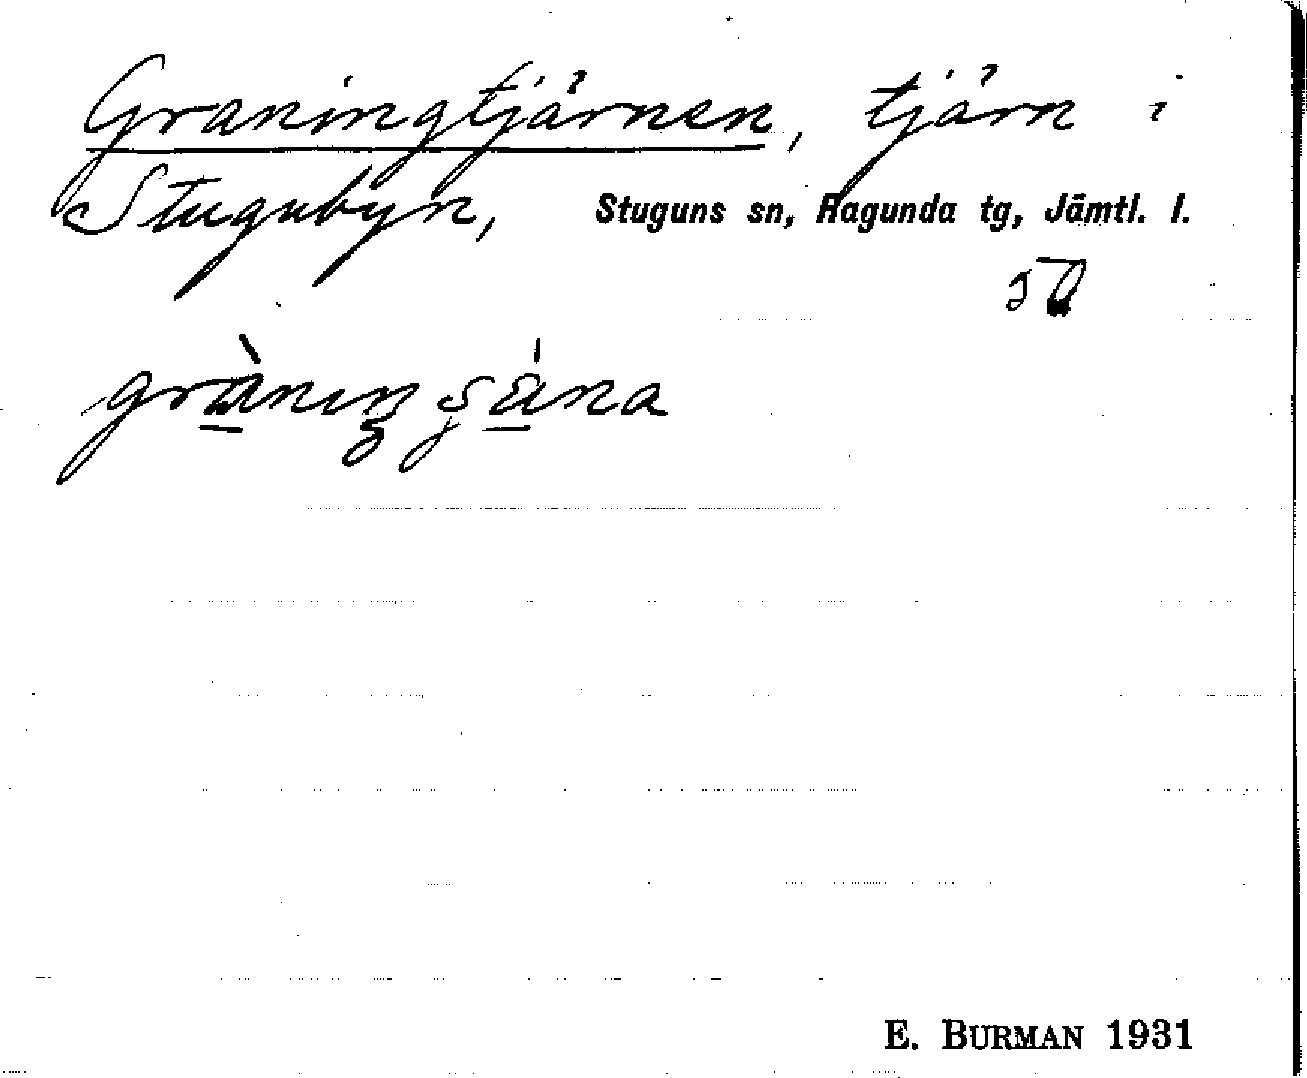 Graningtjärnen, tjärn i
Stugubyn, Stuguns sn, Ragunda tg, Jämtl. l.
E. BURMAN 1931